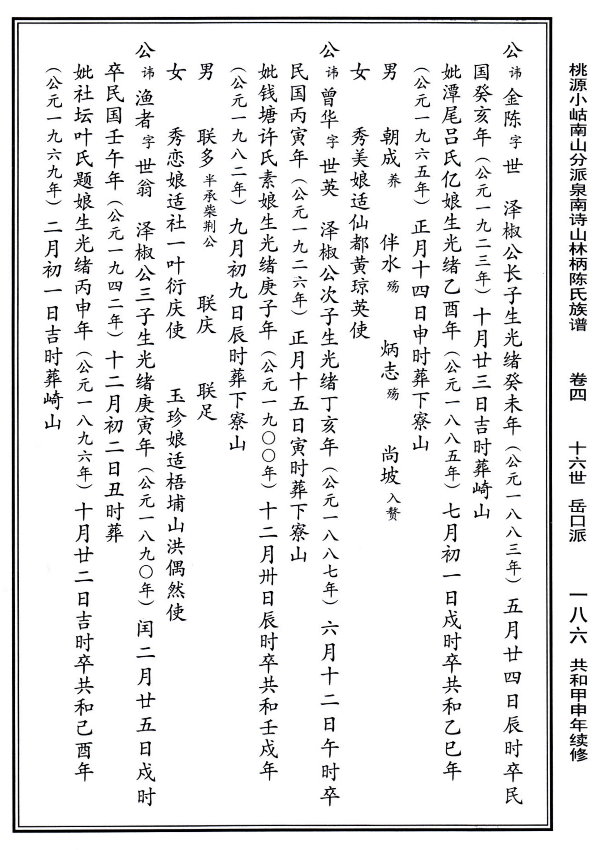 桃源小岵南山分派泉南诗山林柄陈氏族谱 卷四 十六世 岳口派 一八六 共和甲申年续修
公讳金陈字世 泽椒公长子生光绪癸未年（公元一八八三年）五月廿四日辰时卒民
国癸亥年（公元一九二三年）十月廿三日吉时葬崎山
妣潭尾吕氏亿娘生光绪乙酉年（公元一八八五年）七月初一日戌时卒共和乙巳年
（公元一九六五年）正月十四日申时葬下寮山
男 朝成养 伴水殇 炳志殇 尚坡入赘
女 秀美娘适仙都黄琼英使
公讳曾华字世英 泽椒公次子生光绪丁亥年（公元一八八七年）六月十二日午时卒
民国丙寅年（公元一九二六年）正月十五日寅时葬下寮山
妣钱塘许氏素娘生光绪庚子年（公元一九〇〇年）十二月卅日辰时卒共和壬戌年
（公元一九八二年）九月初九日辰时葬下寮山
男 联多半承柴荆公 联庆 联足
女 秀恋娘适社一叶衍庆使 玉珍娘适梧埔山洪偶然使
公讳渔者字世翁 泽椒公三子生光绪庚寅年（公元一八九〇年）闰二月廿五日戌时
卒民国壬午年（公元一九四二年）十二月初二日丑时葬
妣社坛叶氏题娘生光绪丙申年（公元一八九六年）十月廿二日吉时卒共和己酉年
（公元一九六九年）二月初一日吉时葬崎山